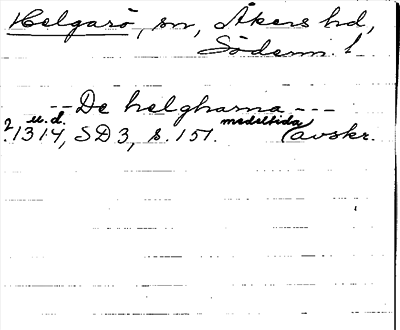 Helgarö, sn, Åkers hd,
Söderm. l.
-- De helgharna ---
? 1314, u.d. SD 3, s. 151. medeltida avskr.